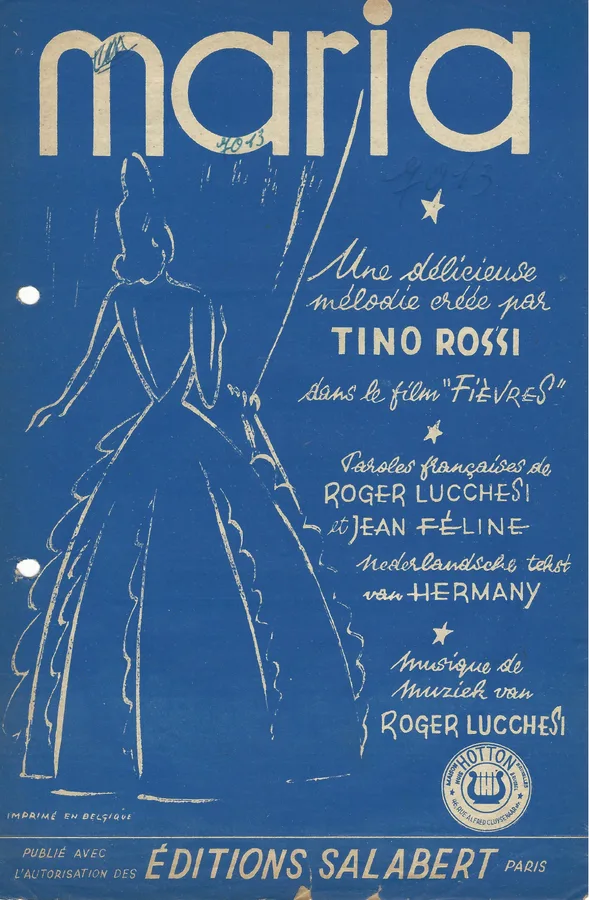 maria
7013
Une délicieuse
mélodie créée par
TINO ROSSI
dans le film "FIÈVRES"
Paroles françaises de
ROGER LUCCHESI
et JEAN FÉLINE
Nederlandsche tekst
van HERMANY
Musique de
Muziek van
ROGER LUCCHESI
HOTTON
IMPRIMÉ EN BELGIQUE
PUBLIÉ AVEC
L'AUTORISATION DES ÉDITIONS SALABERT PARIS